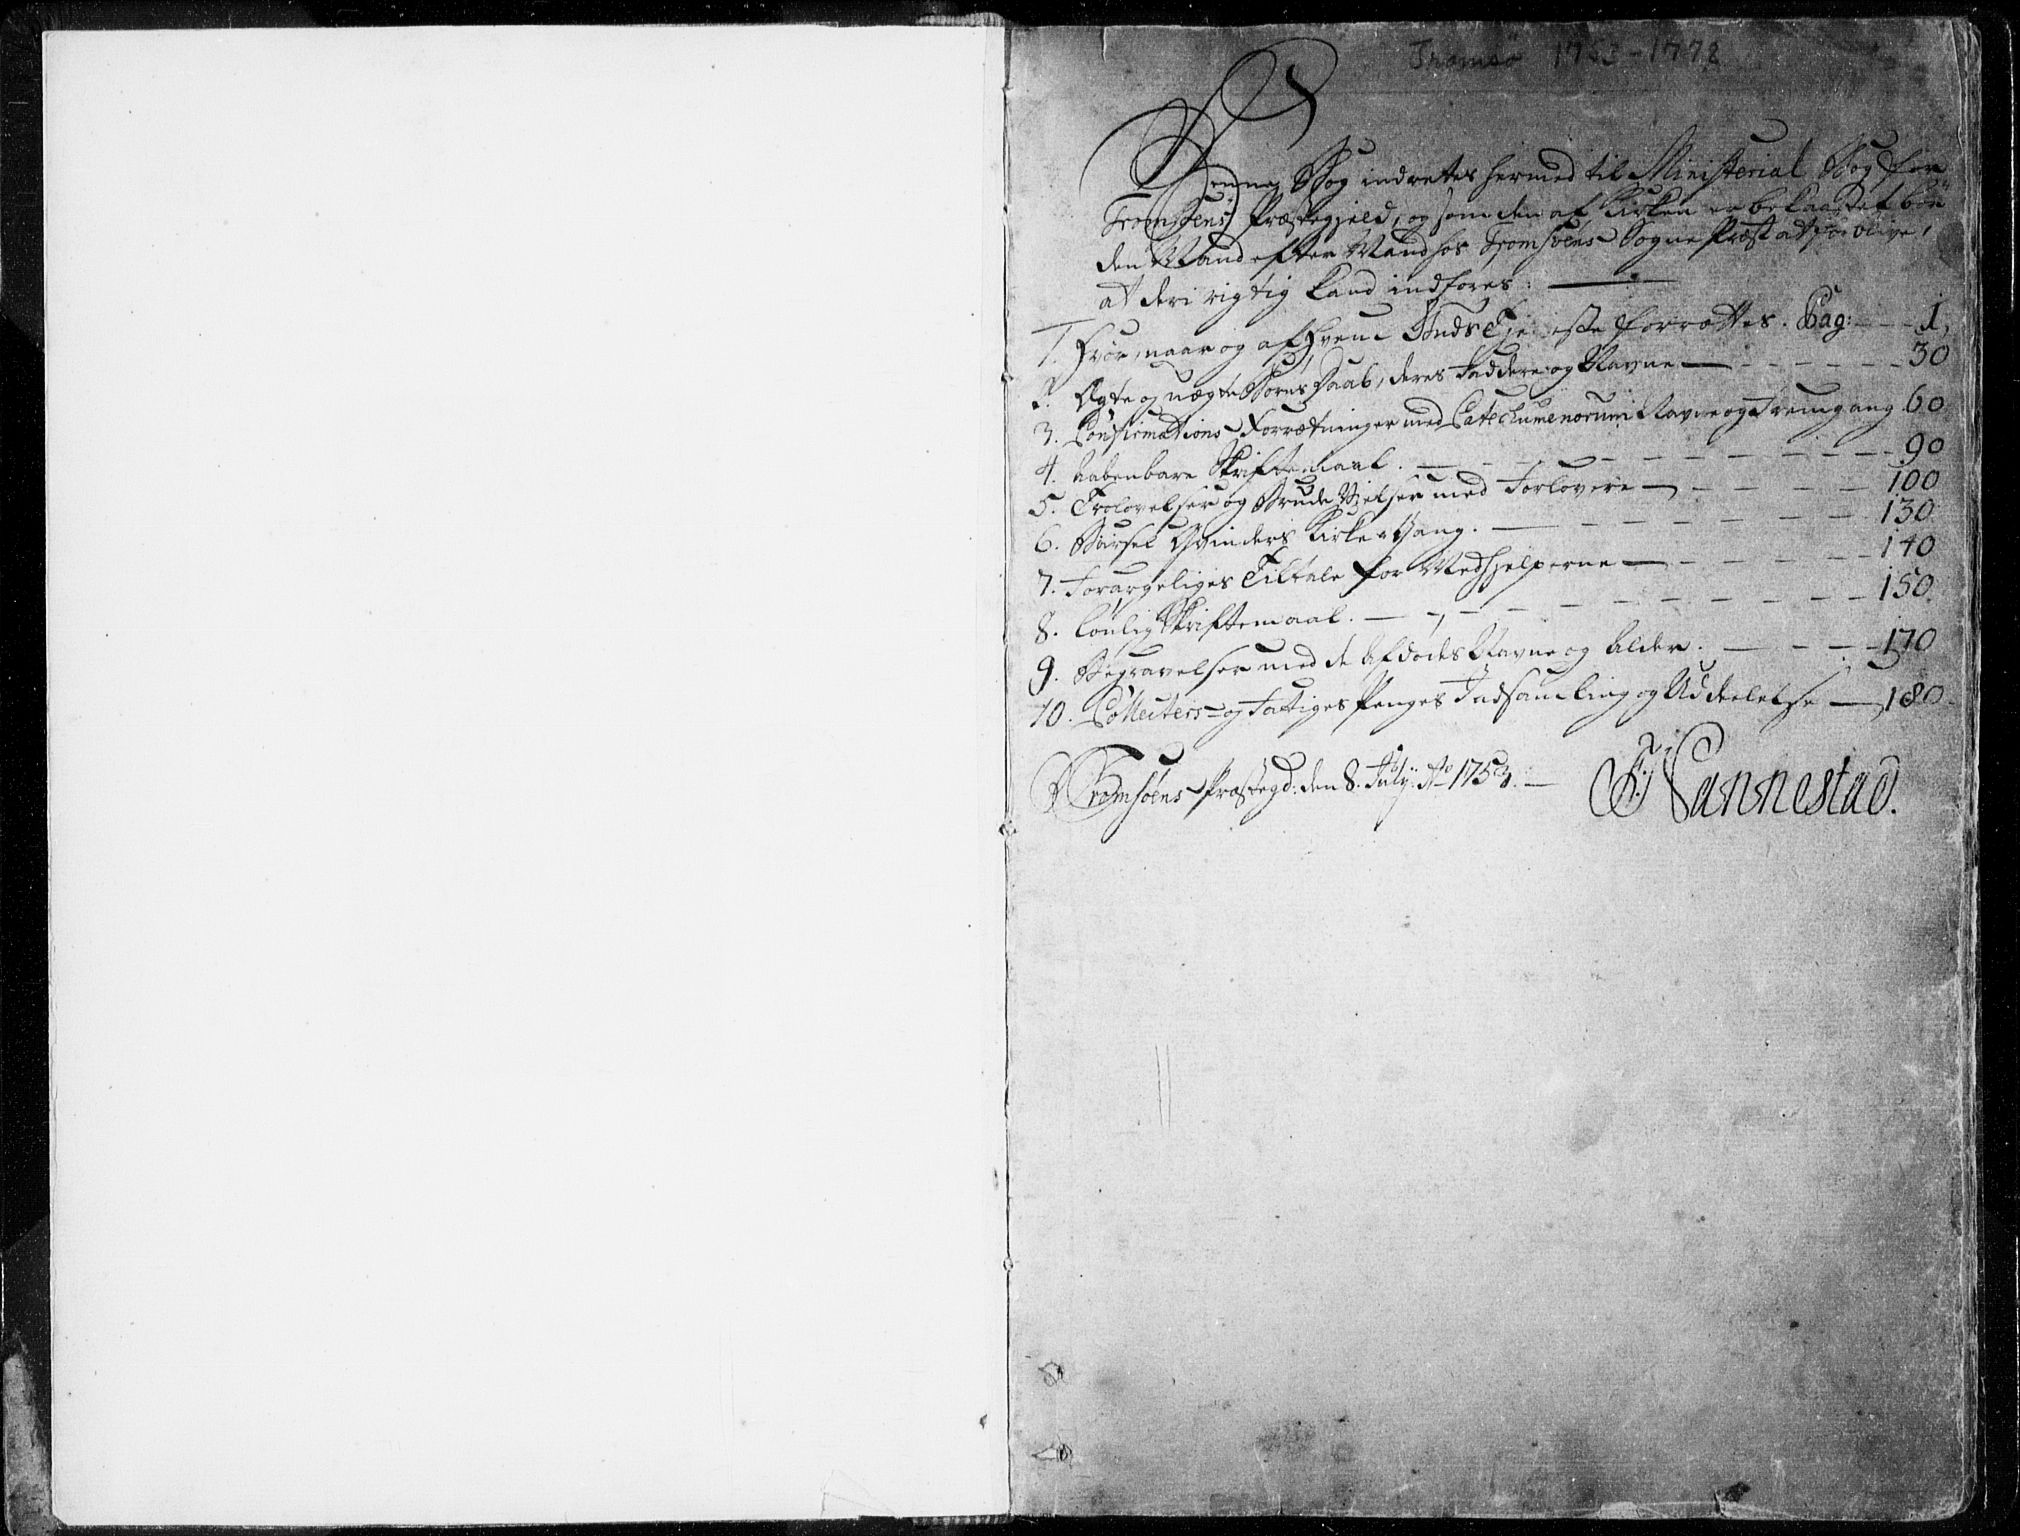 Tromsø 1753-1778
Denne Bog indrettes hermed til Ministerial Bog for
Tromsøens Præstegjeld, og som den af Kirken er bekaastet bør
den Mand efter Mand hos Tromsøens Sogne Præst at forblive,
at deri rigtig kand indføres:
1. Hvor, naar og af hvem Guds Tjeneste forrættes. Pag: 1.
2. Ægte og uægte Børns Daab, deres Faddere og Navne 30
3. Confirmations Forrætninger med Catechumenorum Navne og Fremgang 60
4. Aabenbare Skriftemaal. 90
5. Trolovelser og Brude Vielser med Forlovere 100
6. Barsel Qvinders Kirke Gang. 130
7. Forargeliges Tiltale for Medhjelperne 140
8. Lønlig Skriftemaal. 150
9. Begravelser med de Afdødes Navne og Alder. 170
10. Collecters og Fattiges Penges Indsamling og Uddeelelse 180
Tromsøens Præstegd: den 8. July Ao 1753. F: Nannestad.